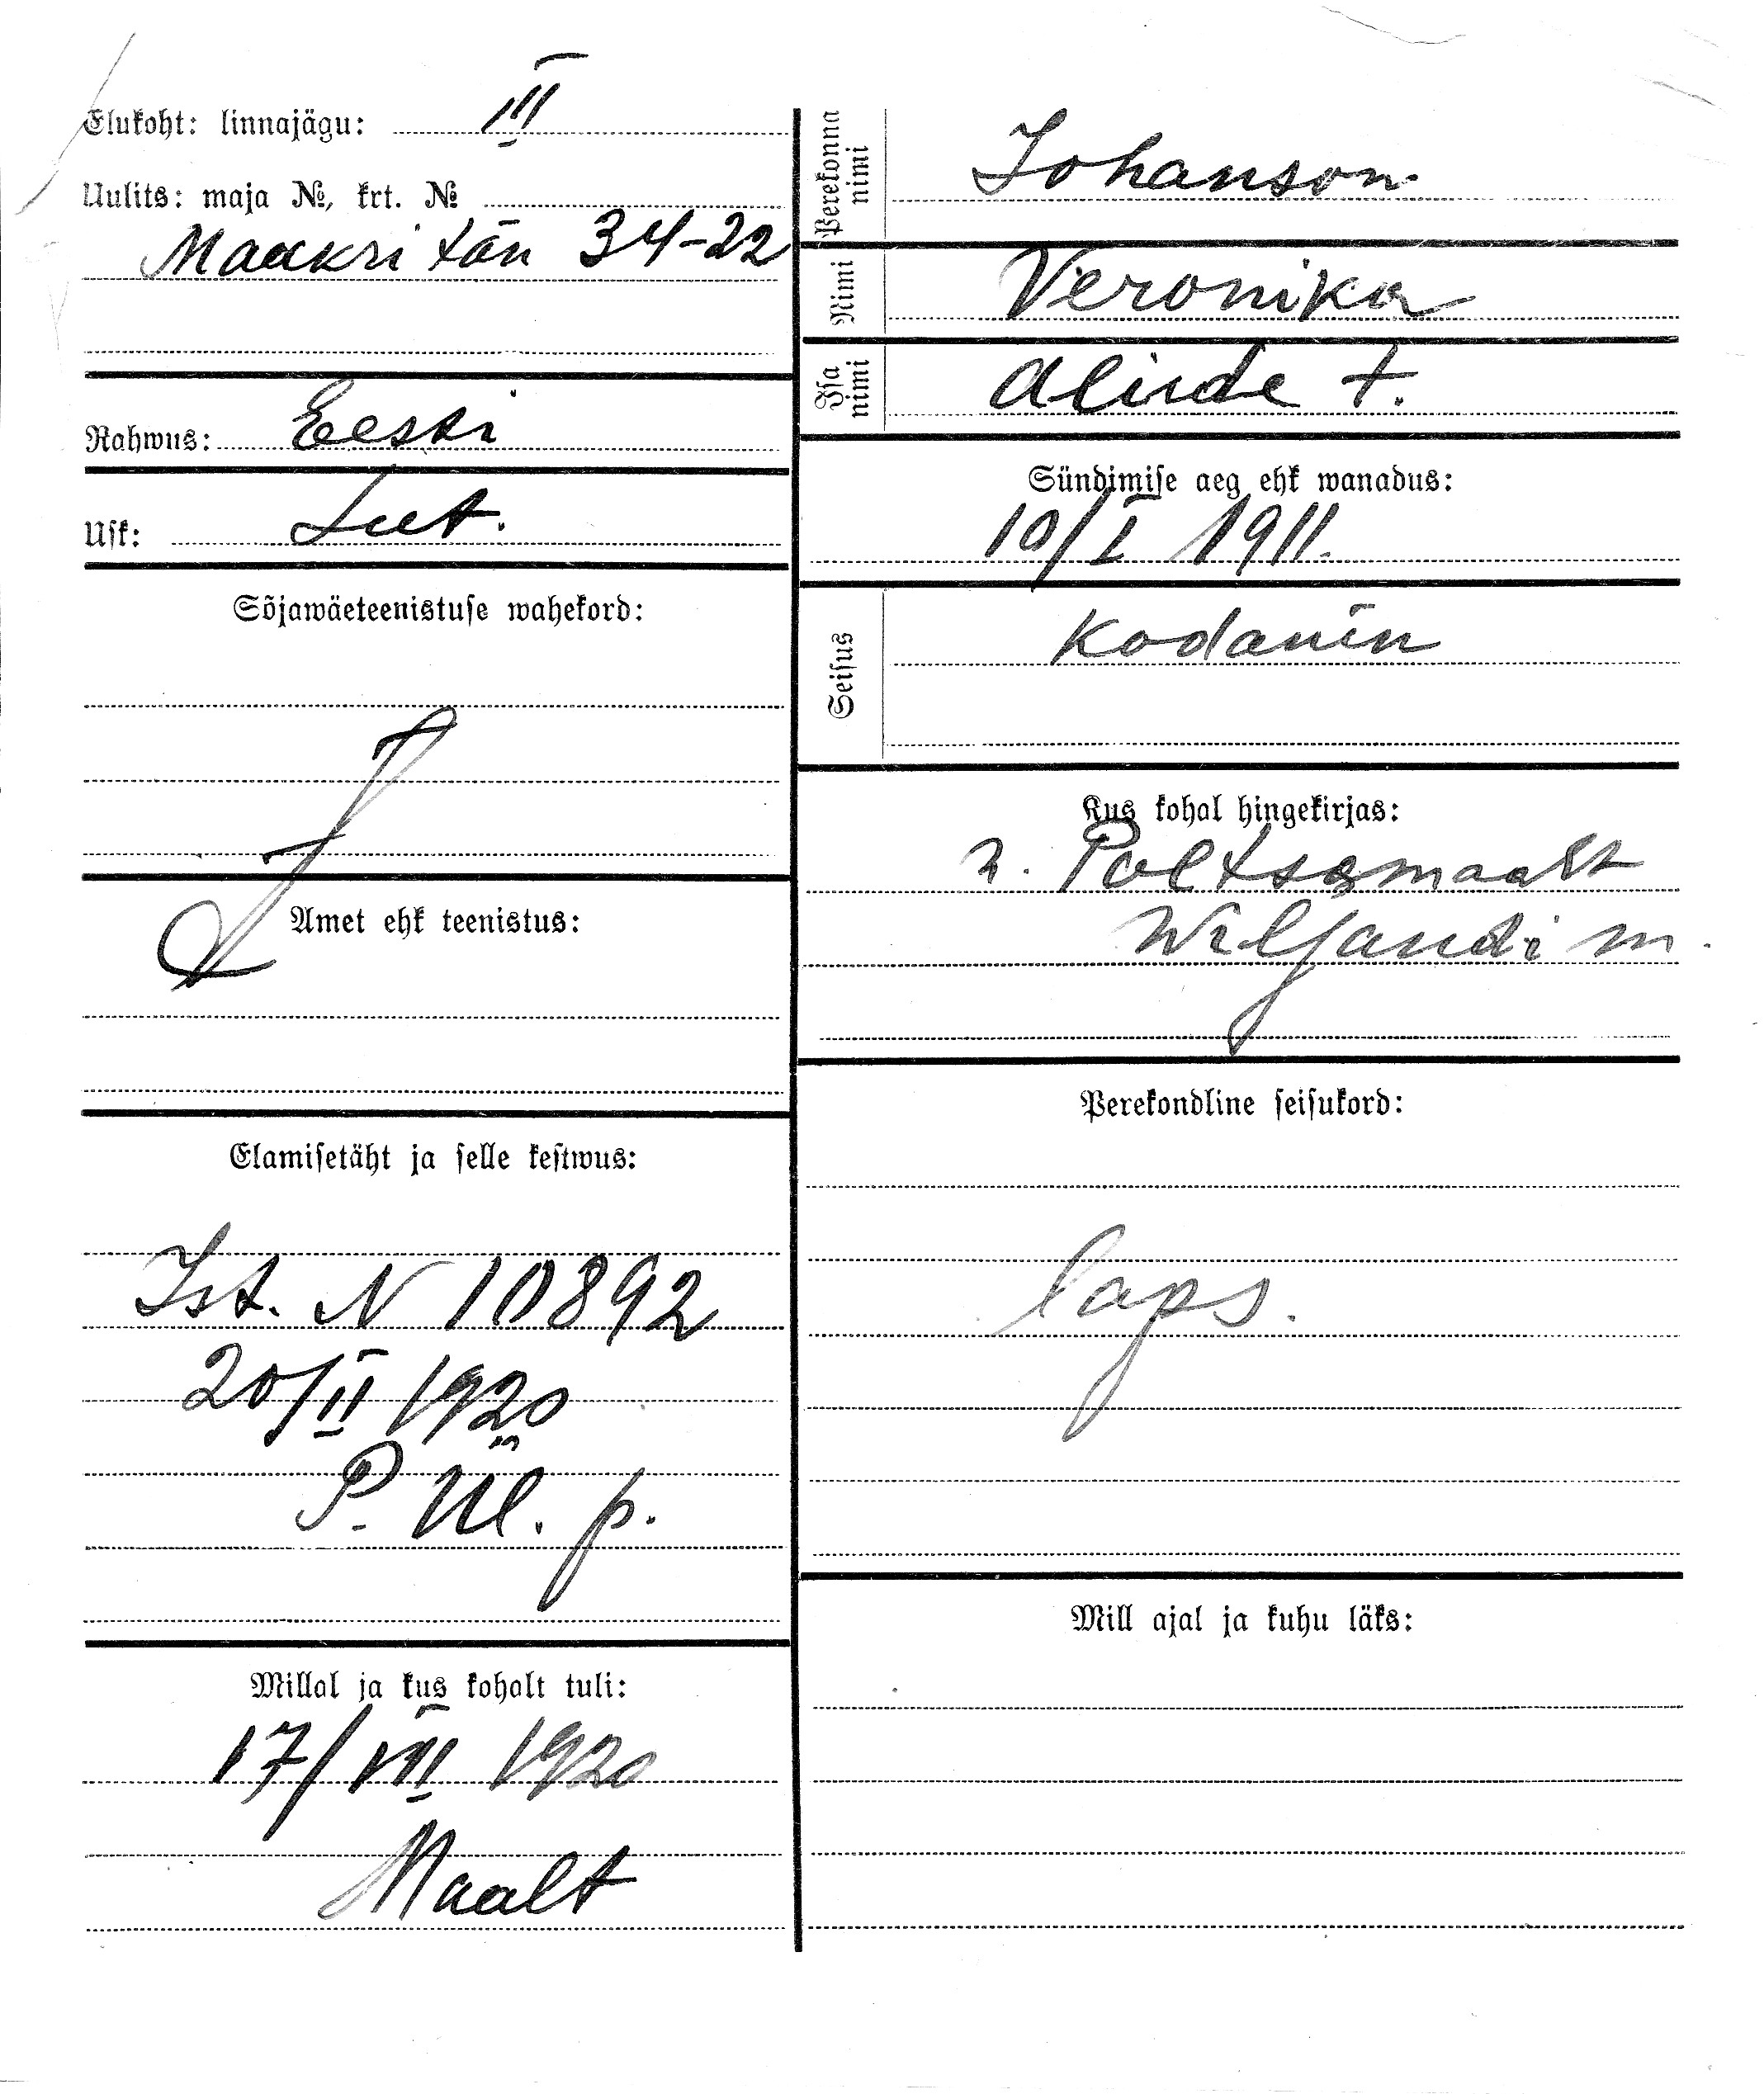 Elukoht: linnajägu: III
Uulits: maja №, krt. №
Maakri tän 34-22
Rahwus: Eesti
Usk: Lut.
Sõjawäeteenistuse wahekord:
Amet ehk teenistus:
Elamisetäht ja selle kestwus:
Ist. N 10892
20/II 1920
P. Ül. p.
Millal ja kus kohalt tuli:
17/VIII 1920
Maalt
Perekonna nimi
Johanson
Nimi
Veronika
Isa nimi
Alide t.
Sündimise aeg ehk wanadus:
10/I 1911.
Seisus
Kodanin
Kus kohal hingekirjas:
n. Poltsamaalt
Wiljandi m.
Perekondline seisukord:
laps.
Mill ajal ja kuhu läks: